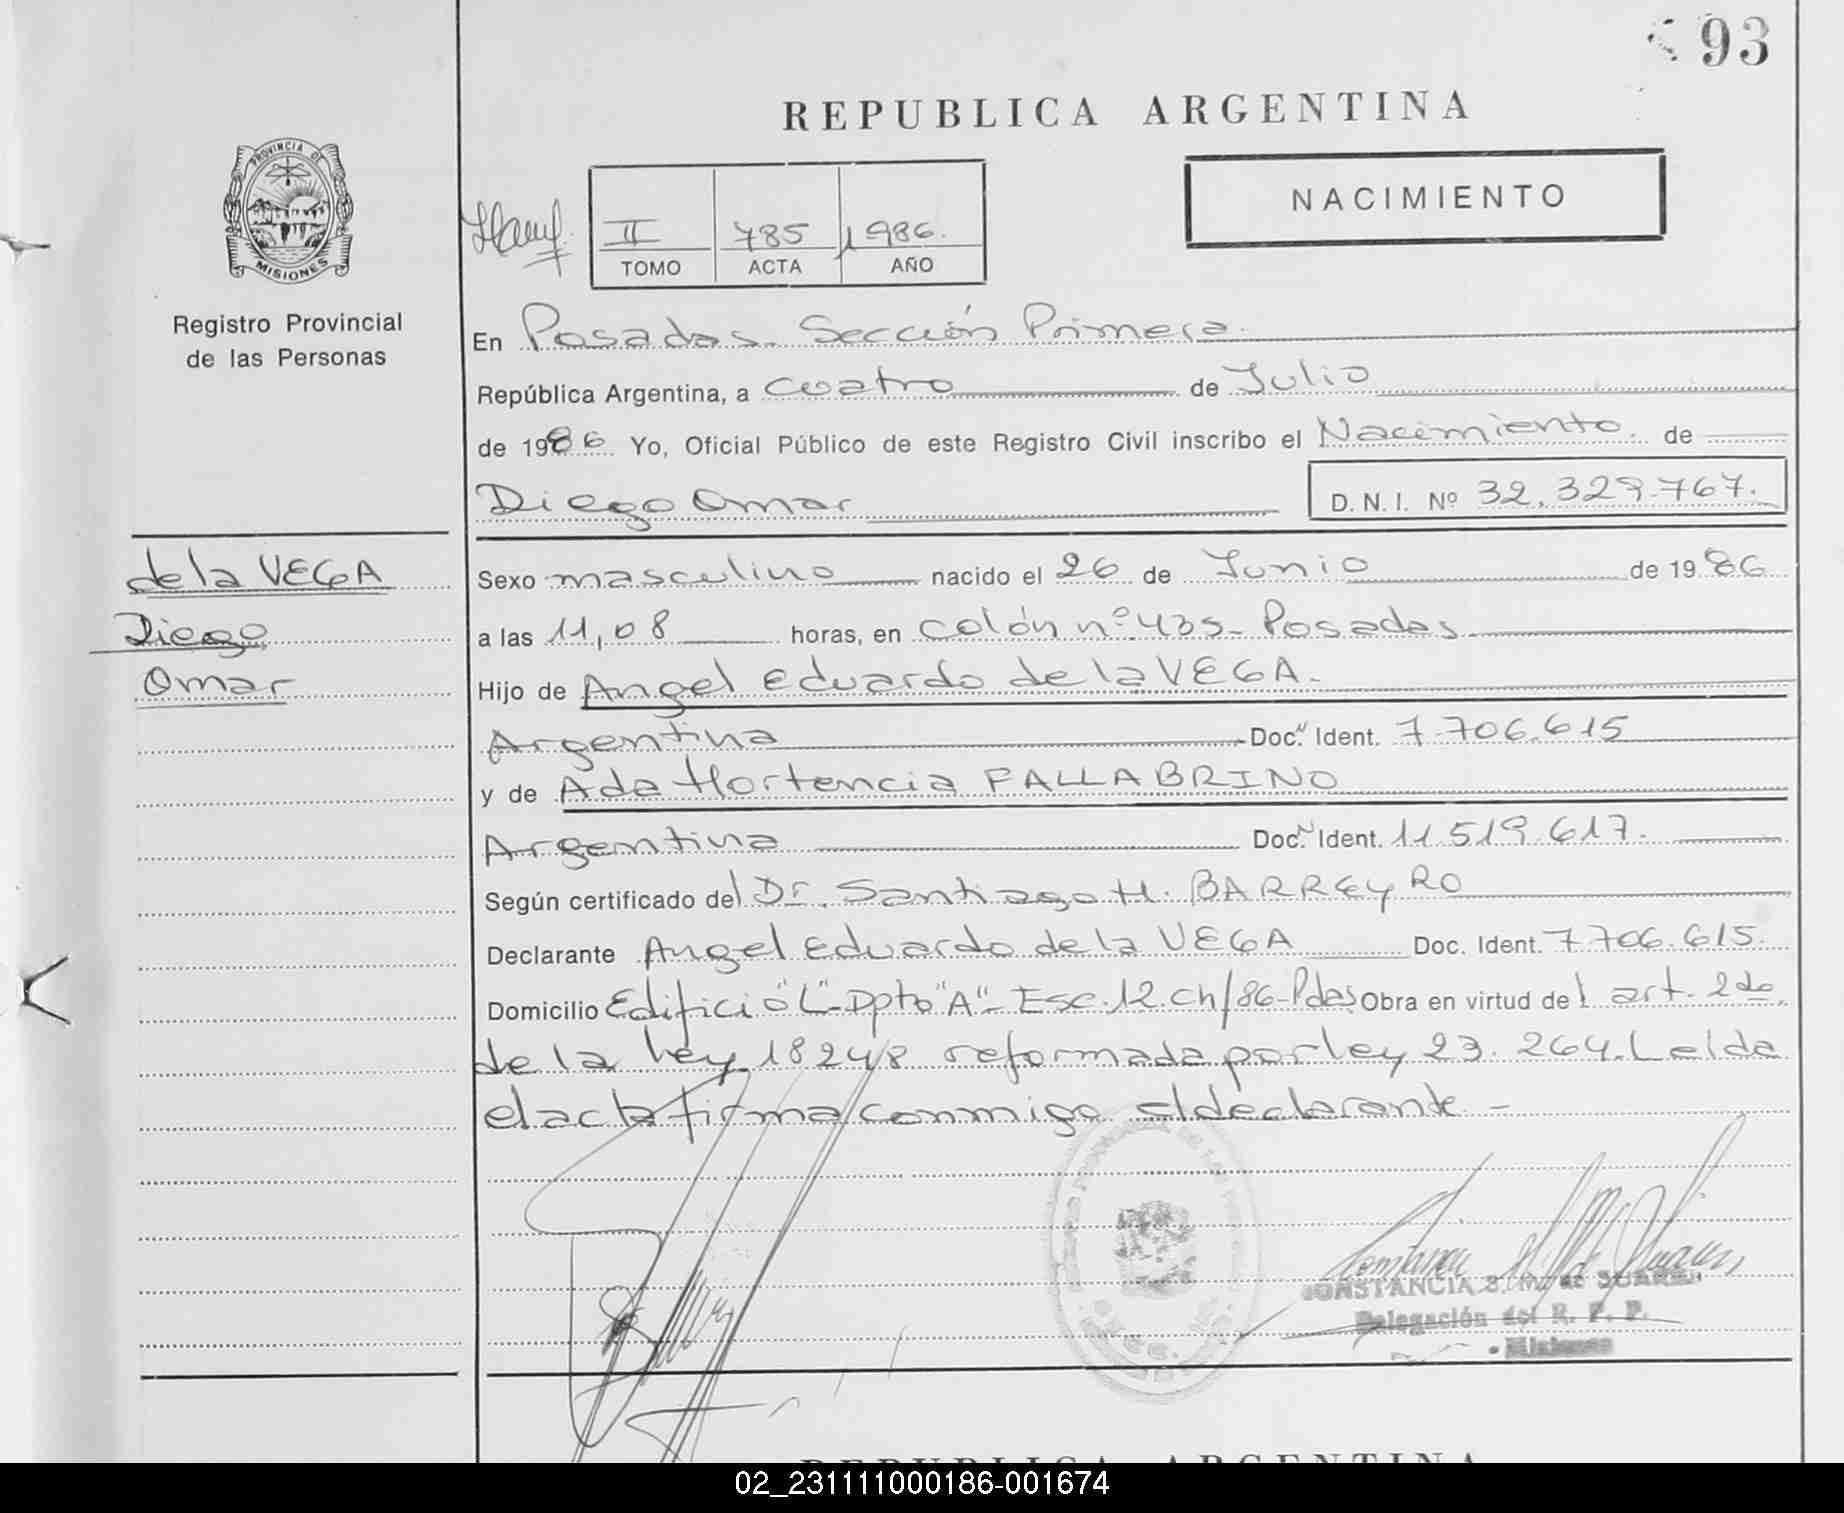 93
REPUBLICA ARGENTINA
NACIMIENTO
PROVINCIA DE
MISIONES
Registro Provincial
de las Personas
II 785 1986.
TOMO ACTA AÑO
En Posadas. Sección Primera.
República Argentina, a cuatro de Julio
de 1986 Yo, Oficial Público de este Registro Civil inscribo el Nacimiento de
Diego Omar D. N. I. Nº 32.329.767.
de la VEGA
Diego
Omar
Sexo masculino nacido el 26 de Junio de 1986
a las 11,08 horas, en colón nº 435- Posadas
Hijo de Angel Eduardo de la VEGA.
Argentina Doc. Ident. 7.706.615
y de Ada Hortencia FALLABRINO
Argentina Doc. Ident. 11.519.617.
Según certificado del Dr. Santiago H. BARREYRO
Declarante Angel Eduardo de la VEGA Doc. Ident. 7.706.615.
Domicilio Edificio "L"-Dpto "A"- Esc.12.Ch/86-Pdas Obra en virtud del art. 2do.
de la Ley 18248 reformada por ley 23.264. Leida
el acta firma conmigo el declarante -
CONSTANCIA S. M. de SUAREZ
Delegación del R. P. P.
Misiones
REPUBLICA ARGENTINA
02_231111000186-001674